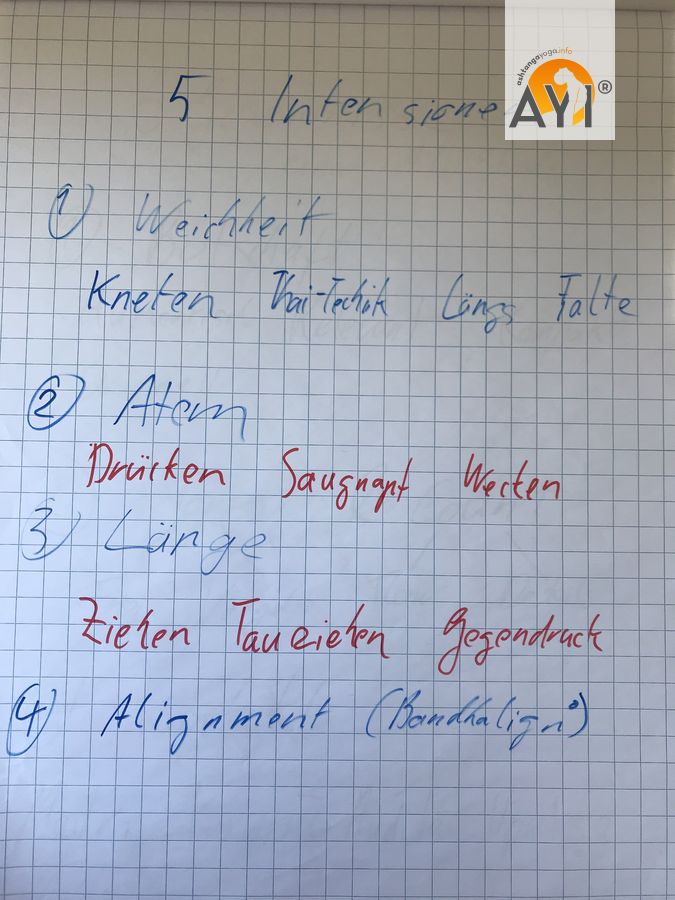 ashtangayoga.info
AYI®
5 Intensione
① Weichheit
Kneten Thai-Technik Längs Falte
② Atem
Drücken Saugnapf Wecken
③ Länge
Ziehen Tauziehen Gegendruck
④ Alignment (Bandhalign°)